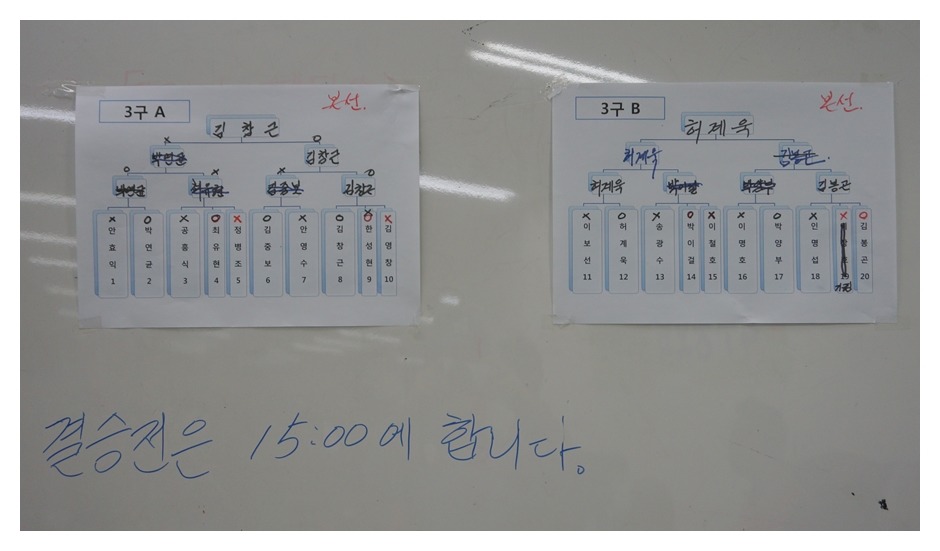 3구 A
본선.
김창근
박연균
김창근
박연균
최유현
김중보
김창근
X O X O X O X O O X
안효익 1
박연균 2
공흥식 3
최유현 4
정병조 5
김중보 6
안영수 7
김창근 8
한성현 9
김영창 10
3구 B
본선.
허제욱
허제욱
김봉곤.
허제욱
박이걸
박양부
김봉곤
X O X O X X O X X O
이보선 11
허계욱 12
송광수 13
박이걸 14
이철호 15
이명호 16
박양부 17
인명섭 18
19
기권
김봉곤 20
결승전은 15:00에 합니다.